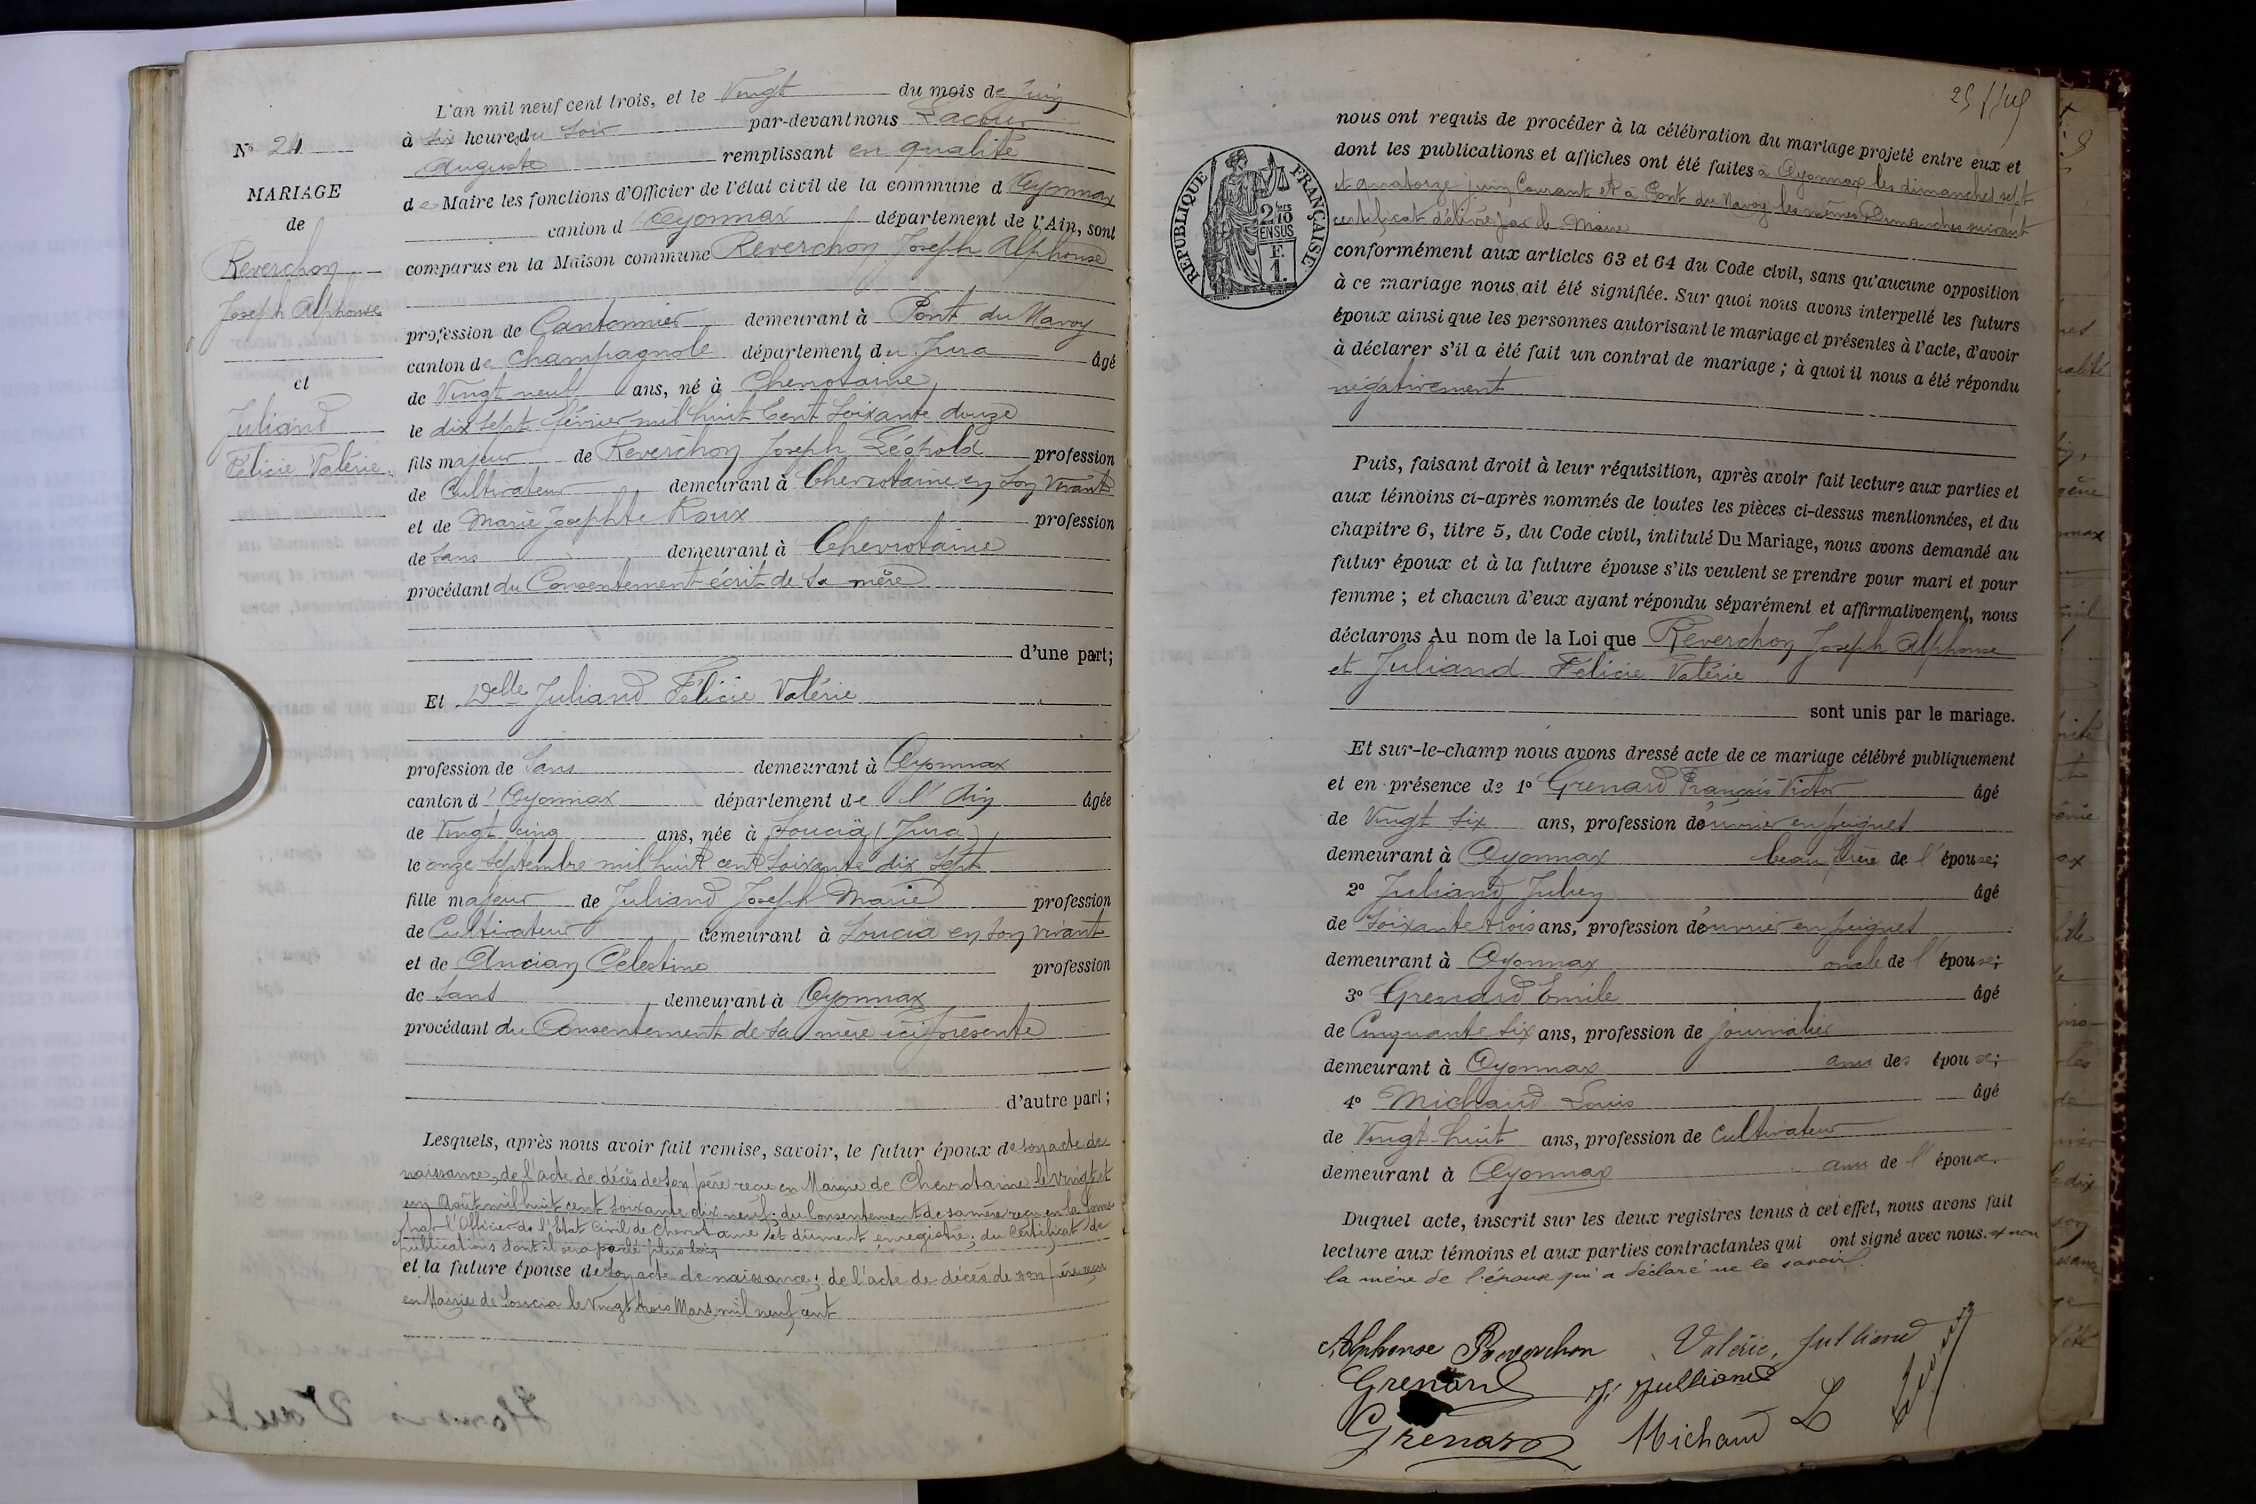 L'an mil neuf cent trois, et le Vingt du mois de juin
à six heures du soir par-devant nous Lacour
Auguste remplissant en qualité
de Maire les fonctions d'Officier de l'état civil de la commune d'Oyonnax
canton d'Oyonnax département de l'Ain, sont
comparus en la Maison commune Reverchon Joseph Alphonse
profession de Cantonnier demeurant à Pont du Navoy
canton de Champagnole département du Jura âgé
de Vingt neuf ans, né à Chevrotaine,
le dix sept février mil huit Cent Soixante douze
fils majeur de Reverchon Joseph Léopold profession
de Cultivateur demeurant à Chevrotaine en son vivant
et de Marie Josephte Roux profession
de sans demeurant à Chevrotaine
procédant du Consentement écrit de sa mère
d'une part;
Et Delle Juliand Félicie Valérie
profession de Sans demeurant à Oyonnax
canton d'Oyonnax département de l'Ain âgée
de Vingt cinq ans, née à Soucia (Jura),
le onze Septembre mil huit cent Soixante dix Sept
fille majeur de Juliand Joseph Marie profession
de Cultivateur demeurant à Soucia en son vivant
et de Ancian Célestine profession
de Sans demeurant à Oyonnax
procédant du Consentement de sa mère ici présente
d'autre part;
Lesquels, après nous avoir fait remise, savoir, le futur époux de son acte de
naissance, de l'acte de décès de son père reçu en Mairie de Chevrotaine le vingt et
un Août mil huit cent soixante dix neuf; du Consentement de sa mère reçu en la forme
par l'Officier de l'Etat Civil de Chevrotaine et dûment enregistré; du Certificat de
publications dont il sera parlé plus loin
et la future épouse de son acte de naissance; de l'acte de décès de son père reçu
en Mairie de Soucia le Vingt trois Mars mil neuf cent
Nº 24
MARIAGE
de
Reverchon
Joseph Alphonse
et
Juliand
Félicie Valérie
nous ont requis de procéder à la célébration du mariage projeté entre eux et
dont les publications et affiches ont été faites à Oyonnax les dimanches sept
et quatorze juin Courant et à Pont du Navoy les mêmes Dimanches suivant
certificat délivré par le Maire
conformément aux articles 63 et 64 du Code civil, sans qu'aucune opposition
à ce mariage nous ait été signifiée. Sur quoi nous avons interpellé les futurs
époux ainsi que les personnes autorisant le mariage et présentes à l'acte, d'avoir
à déclarer s'il a été fait un contrat de mariage; à quoi il nous a été répondu
négativement
Puis, faisant droit à leur réquisition, après avoir fait lecture aux parties et
aux témoins ci-après nommés de toutes les pièces ci-dessus mentionnées, et du
chapitre 6, titre 5, du Code civil, intitulé Du Mariage, nous avons demandé au
futur époux et à la future épouse s'ils veulent se prendre pour mari et pour
femme; et chacun d'eux ayant répondu séparément et affirmativement, nous
déclarons Au nom de la Loi que Reverchon Joseph Alphonse
et Juliand Félicie Valérie
sont unis par le mariage.
Et sur-le-champ nous avons dressé acte de ce mariage célébré publiquement
et en présence de 1º Grenard François Victor âgé
de Vingt Six ans, profession d'ouvrier en peignes
demeurant à Oyonnax beau frère de l'épouse;
2º Juliand Julien âgé
de Soixante trois ans, profession d'ouvrier en peignes
demeurant à Oyonnax oncle de l'épouse;
3º Grenard Emile âgé
de Cinquante Six ans, profession de journalier
demeurant à Oyonnax ami des époux;
4º Michaud Louis âgé
de Vingt-huit ans, profession de Cultivateur
demeurant à Oyonnax ami de l'époux.
Duquel acte, inscrit sur les deux registres tenus à cet effet, nous avons fait
lecture aux témoins et aux parties contractantes qui ont signé avec nous. et non
la mère de l'épouse qui a déclaré ne le savoir.
Alphonse Reverchon Valérie Julliand
Grenard J. Julliand
Grenard Michaud L
REPUBLIQUE FRANÇAISE
2/10
EN SUS
F.
1.